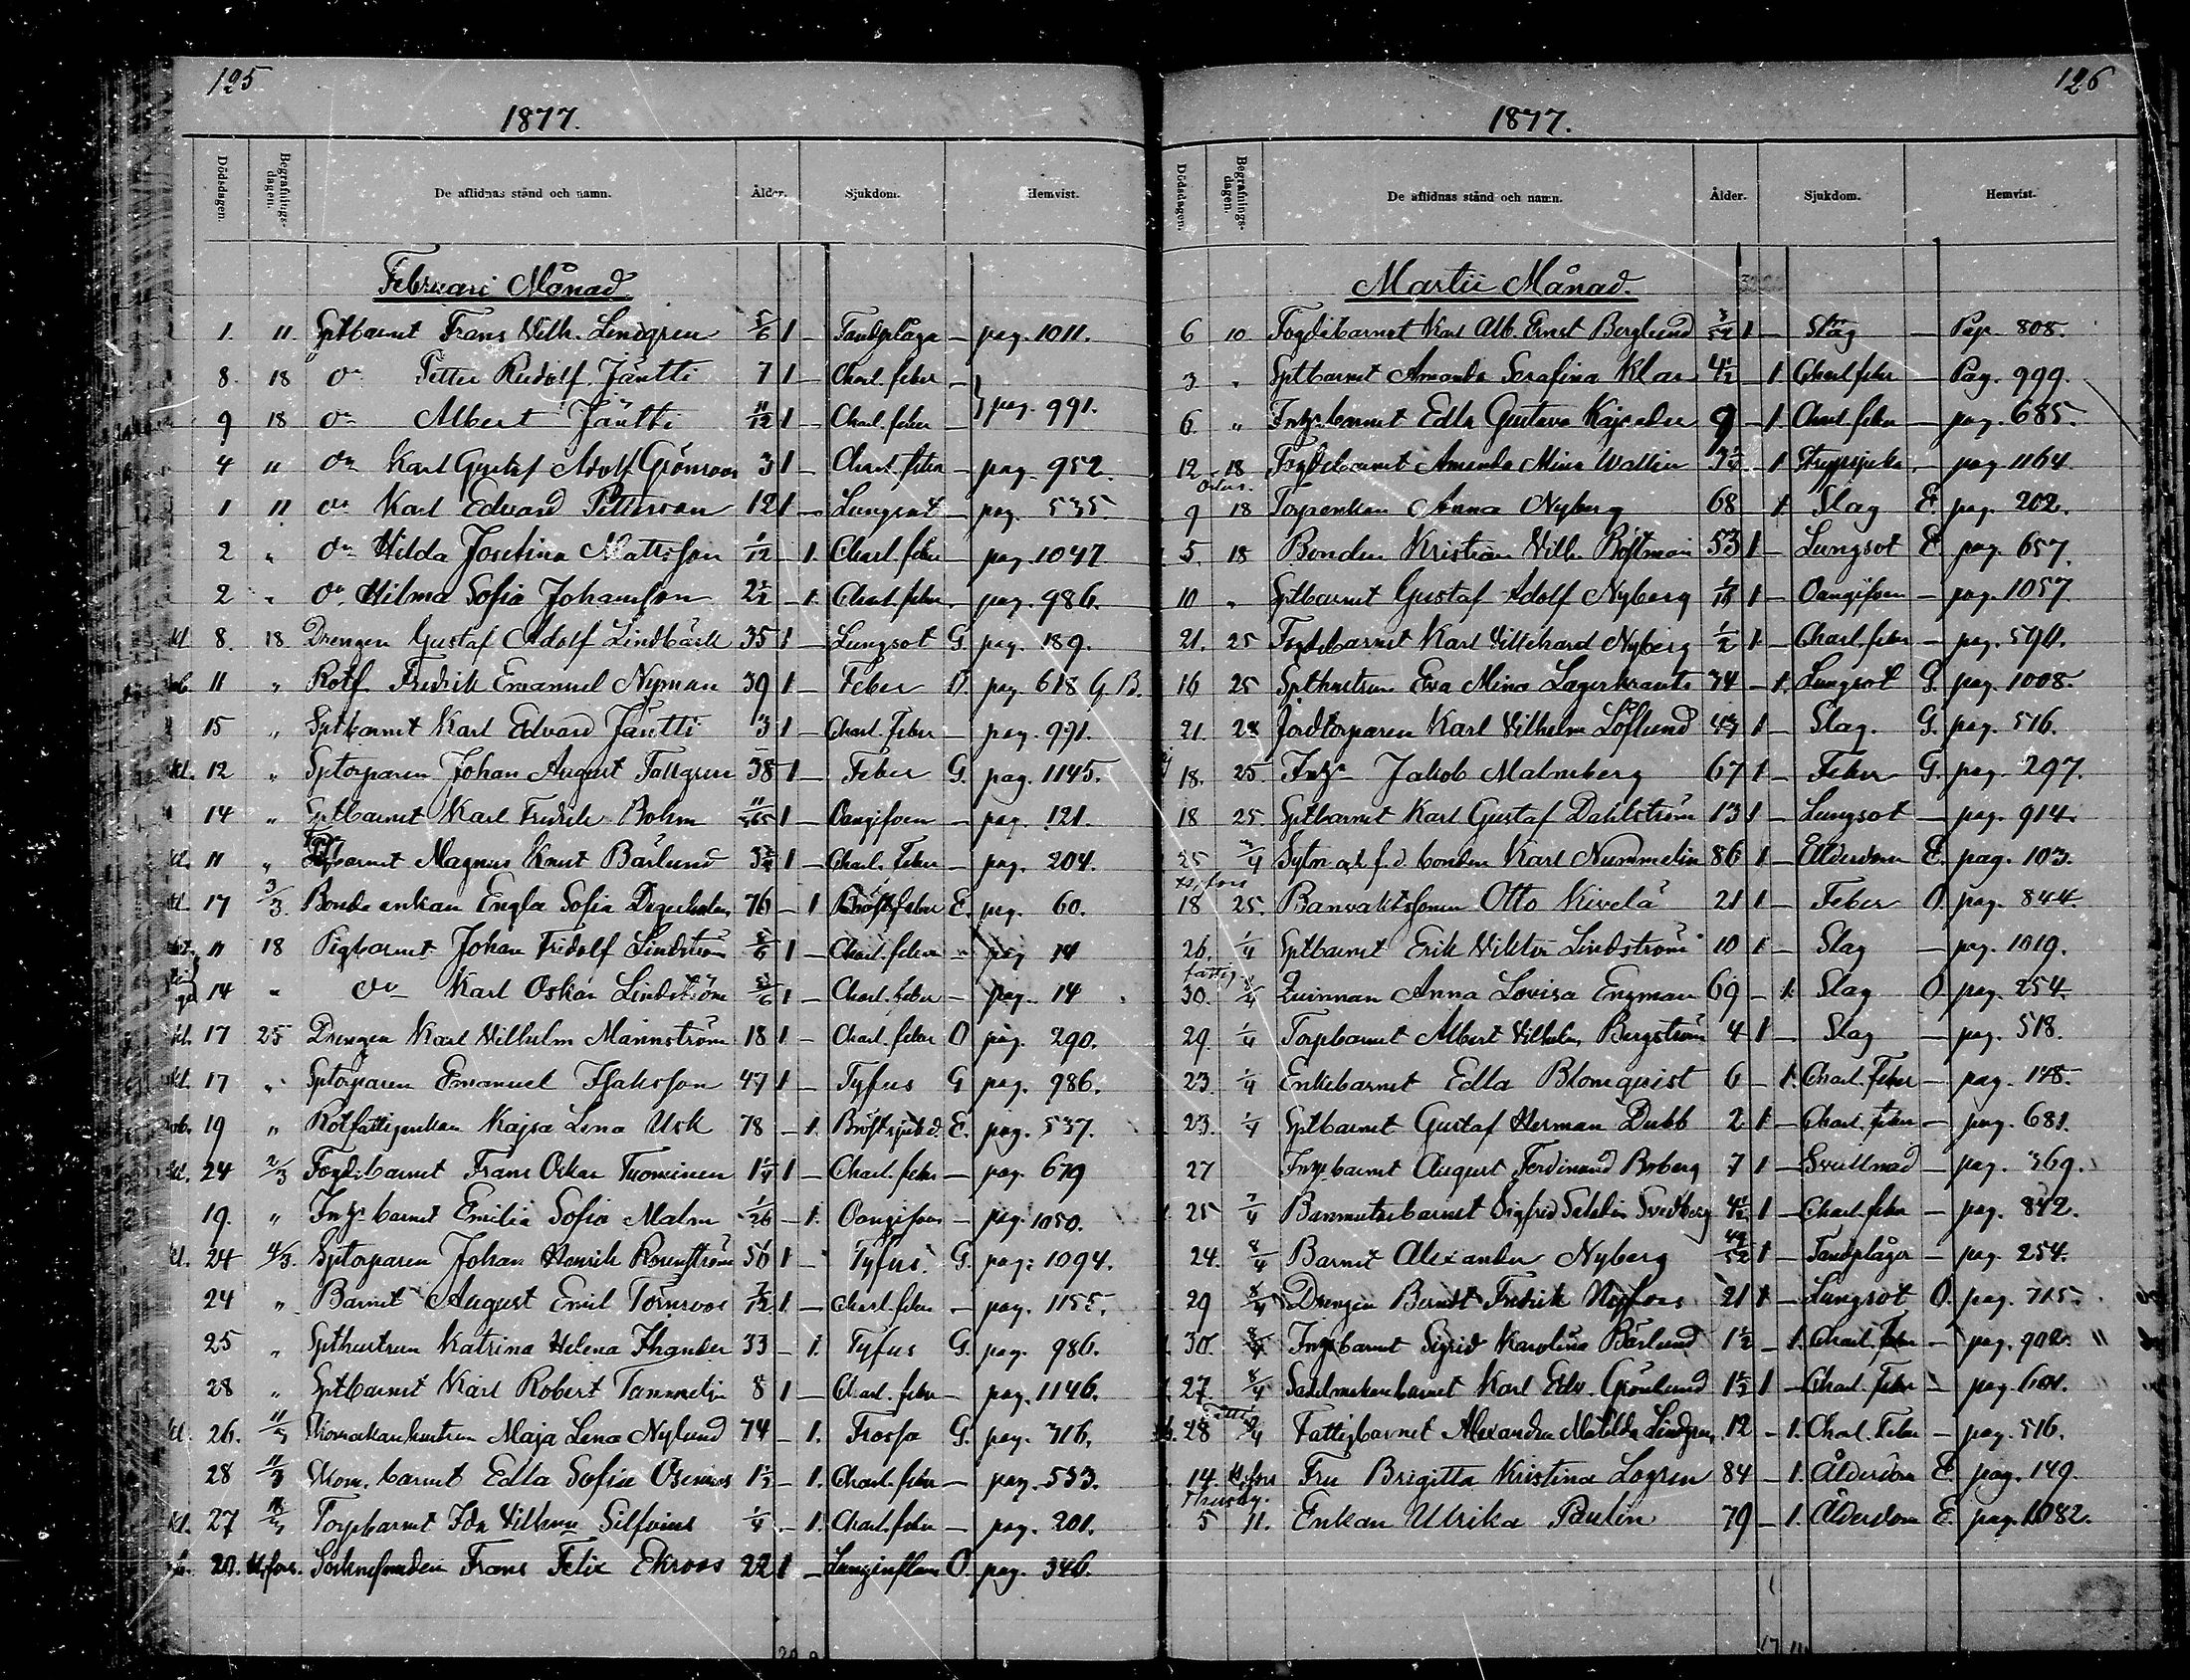 125
1877.
Dödsdagen. Begrafningsdagen. De aflidnas stånd och namn. Ålder. Sjukdom. Hemvist.
Februari Månad.
1. 11. Sptbarnet Frans Vilh. Lindgren 5/6 1 — Tandplåga — pag. 1011.
8. 18 do Petter Rudolf Jäntti 7 1 — Charl. feber —
9 18 do Albert Jäntti 11/12 1 — Charl. feber — } pag. 991.
4 11 do Karl Gustaf Adolf Grönroos 3 1 — Charl. feber — pag. 952.
1 11 do Karl Edvard Petterson 12 1 — Lungsot — pag. 535.
2 „ do Hilda Josefina Mattsson 1/12 — 1. Charl. feber — pag. 1047.
2 „ do Hilma Sofia Johansson 2 1/2 — 1. Charl. feber — pag. 986.
kl. 8. 18. Drengen Gustaf Adolf Lindbäck 35 1 — Lungsot G. pag. 189.
11 „ Rotf. Fredrik Emanuel Nyman 39 1 — Feber O. pag. 618 G. B.
15 „ Sptbarnet Karl Edvard Jäntti 3 1 — Charl. Feber — pag. 991.
kl. 12 „ Sptorparen Johan August Tallgren 38 1 — Feber G. pag. 1145.
14 „ Sptbarnet Karl Fredrik Bohm 11/365 1 — Oangifven — pag. 121.
kl. 11 „ barnet Magnus Knut Bärlund 3 3/4 1 — Charl. Feber — pag. 204.
kl. 17 3/3. Bonde enkan Engla Sofia 76 — 1 Bröstfeber E. pag. 60.
11 18 Pigbarnet Johan Fridolf Lindström 5/6 1 — Charl. feber „ pag 14
14 „ do Karl Oskar Lindström 5/6 1 — Charl. feber — pag. 14
kl. 17 25 Drengen Karl Vilhelm Mannström 18 1 — Charl. feber O pag. 290.
kl. 17 „ Sptorparen Emanuel Isaksson 47 1 — Tyfus G pag. 986.
ob. 19 „ Rotfattigenkan Kajsa Lena Usk 78 — 1. Bröstsjukd. E. pag. 537.
kl. 24 2/3 Fogdebarnet Frans Oskar Tuominen 1 1/4 1 — Charl. feber — pag. 679
19. „ Inhys barnet Emilia Sofia Malm 1/26 — 1. Oangifven — pag. 1050.
kl. 24 4/3. Sptorparen Johan Henrik Rosenström 56 1 — Tyfus. G. pag: 1094.
24 „ Barnet August Emil Törnroos 7/12 1. — Charl. feber — pag. 1155.
25 „ Spthustrun Katrina Helena Thander 33 — 1. Tyfus G. pag. 986.
28 „ Sptbarnet Karl Robert Tammelin 8 1 — Charl. feber — pag. 1146.
kl. 26. 11/3 Skomakarehustrun Maja Lena Nylund 74 — 1. Frossa G. pag. 316.
28 11/3 Skom. barnet Edla Sofia 1 1/2 — 1. Charl. feber — pag. 533.
kl. 27 18/3 Torpbarnet Ida Vilhmi Silfvius 1/4 — 1. Charl. feber — pag. 201.
20. H:fors. Socknesmeden Frans Felix Ekroos 22 1 — Lunginflam O. pag. 346.
126
1877.
Dödsdagen. Begrafningsdagen. De aflidnas stånd och namn. Ålder. Sjukdom. Hemvist.
Martii Månad.
6 10 Fogdebarnet Karl Alb. Ernst Berglund 3/52 1 — Slag — Pag. 808.
3 „ Sptbarnet Amanda Serafina Klar 4 1/2 — 1. Charl feber — Pag. 999.
6. „ Inhys.barnet Edla Gustava Kajander 9 — 1. Charl. feber — pag. 685.
12 18 Fogdebarnet Amanda Mina Wallin 3 3/4 — 1 Strypsjuka — pag. 1164.
9 18 Torparenkan Anna Nyberg 68 1. Slag E. pag. 202.
5. 18 Bonden Kristian Vilh. Böstman 53 1 — Lungsot E. pag. 657.
10 „ Sptbarnet Gustaf Adolf Nyberg 1 — Oangifven — pag. 1057.
21. 25 Fogdebarnet Karl Villehard Nyberg 1/2 1. — Charl. feber — pag. 590.
16 25 Spthustrun Eva Mina Lagerkrants 34 — 1. Lungsot G. pag. 1008.
21. 28 Jordtorparen Karl Vilhelm Löflund 44 1 — Slag. G. pag. 516.
18. 25. Inhys Jakob Malmberg 67 1 — Feber G. pag. 297.
18 25 Sptbarnet Karl Gustaf Dahlström 13 1 — Lungsot — pag. 914.
25 2/4 Sytn. o. f. d. bonden Karl Nummelin 86 1 — Ålderdom E. pag. 103.
18 25. Banvaktssonen Otto Kivelä 21 1 — Feber O. pag. 844.
26. 1/4 Sptbarnet Erik Viktor Lindström 10 1 — Slag — pag. 1019.
fattig.
30. 2/4 Quinnan Anna Lovisa Engman 69 — 1. Slag O. pag. 254.
29. 1/4 Torpbarnet Albert Vilhelm Bergström 4 1 — Slag — pag. 518.
23. 1/4 Enkebarnet Edla Blomqvist 6 — 1. Charl. Feber — pag. 148.
23. 1/4 Sptbarnet Gustaf Herman Dubb 2 1 — Charl. feber — pag. 681.
27 Inhys.barnet August Ferdinand Boberg 7 1 — Svullnad — pag. 369.
25 7/4 Banmästarebarnet Sigfrid Svedberg 4 1/2 1 — Charl. feber — pag. 842.
24. 8/4 Barnet Alexander Nyberg 49/52 1 — Tandplågor — pag. 254.
29 8/4 Drengen Berndt Fredrik Nyfors 21 1 — Lungsot O. pag. 715.
30. 8/4 Inhysbarnet Sigrid Karolina Bärlund 1 1/2 — 1. Charl. Feber — pag. 902.
27. 8/4 Sadelmakarebarnet Karl Edv. Grönlund 1 1/2 1 — Charl. Feber — pag. 601.
28 2/4 Fattigbarnet Alexandra Matilda Lindgren 12 — 1. Charl. Feber — pag. 516.
14. H:fors Fru Brigitta Kristina Logren 84 — 1. Ålderdom E. pag. 149.
5 11. Enkan Ulrika Paulin 79 — 1. Ålderdom E. pag. 1082.